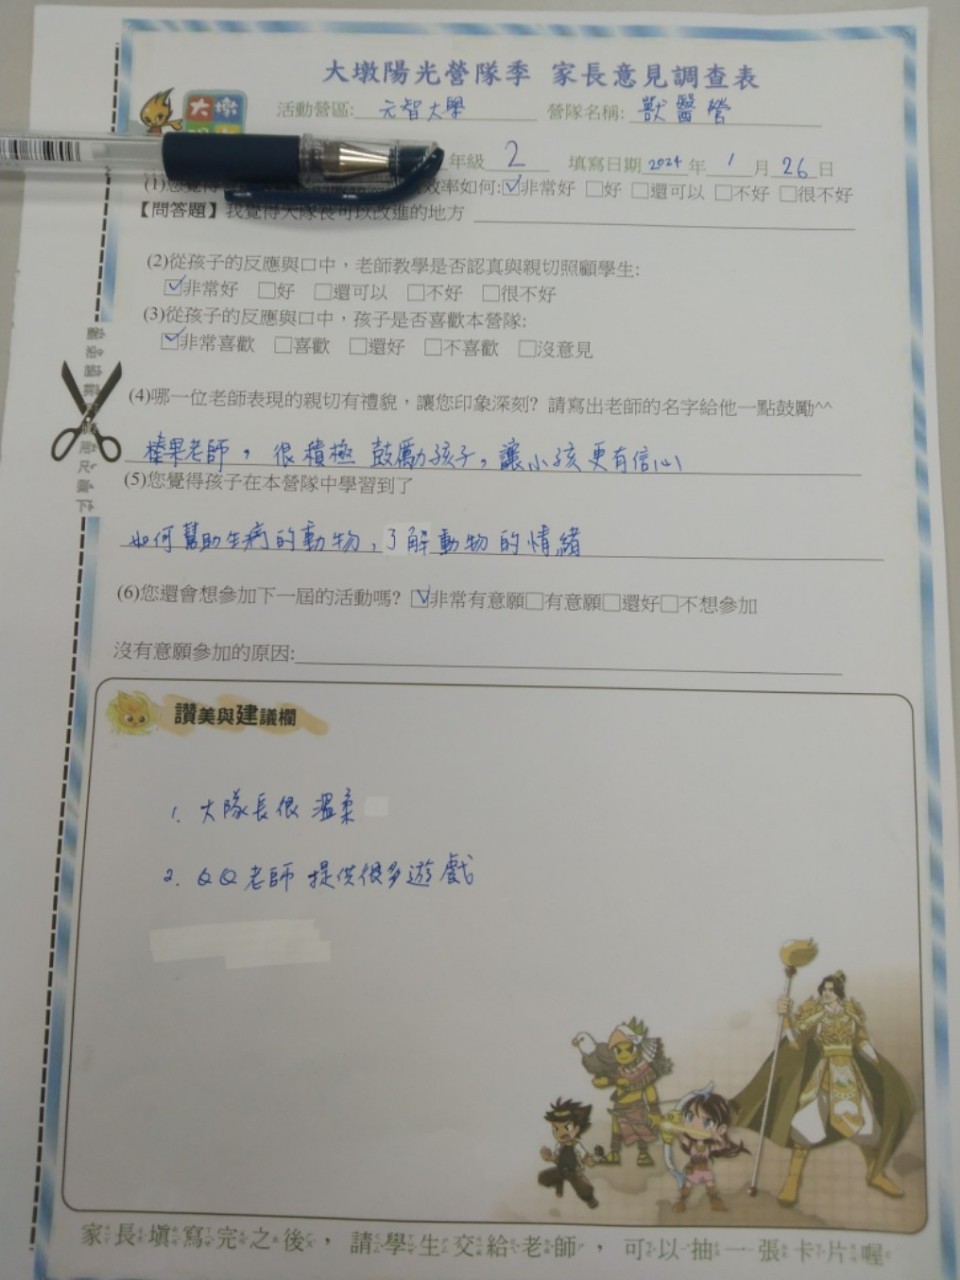 大墩陽光營隊季 家長意見調查表
大墩
活動營區: 元智大學 營隊名稱: 獸醫營
年級 2 填寫日期 2024 年 1 月 26 日
(1)您覺得 效率如何:☑非常好 □好 □還可以 □不好 □很不好
【問答題】我覺得大隊長可以改進的地方
(2)從孩子的反應與口中,老師教學是否認真與親切照顧學生:
☑非常好 □好 □還可以 □不好 □很不好
(3)從孩子的反應與口中,孩子是否喜歡本營隊:
☑非常喜歡 □喜歡 □還好 □不喜歡 □沒意見
(4)哪一位老師表現的親切有禮貌,讓您印象深刻? 請寫出老師的名字給他一點鼓勵^^
榛果老師,很積極鼓勵孩子,讓小孩更有信心
(5)您覺得孩子在本營隊中學習到了
如何幫助生病的動物,了解動物的情緒
(6)您還會想參加下一屆的活動嗎? ☑非常有意願□有意願□還好□不想參加
沒有意願參加的原因:
讚美與建議欄
1. 大隊長很溫柔
2. QQ老師提供很多遊戲
家長填寫完之後,請學生交給老師,可以抽一張卡片喔